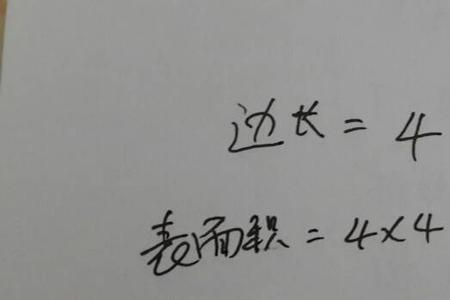 边长 = 4
表面积 = 4×4